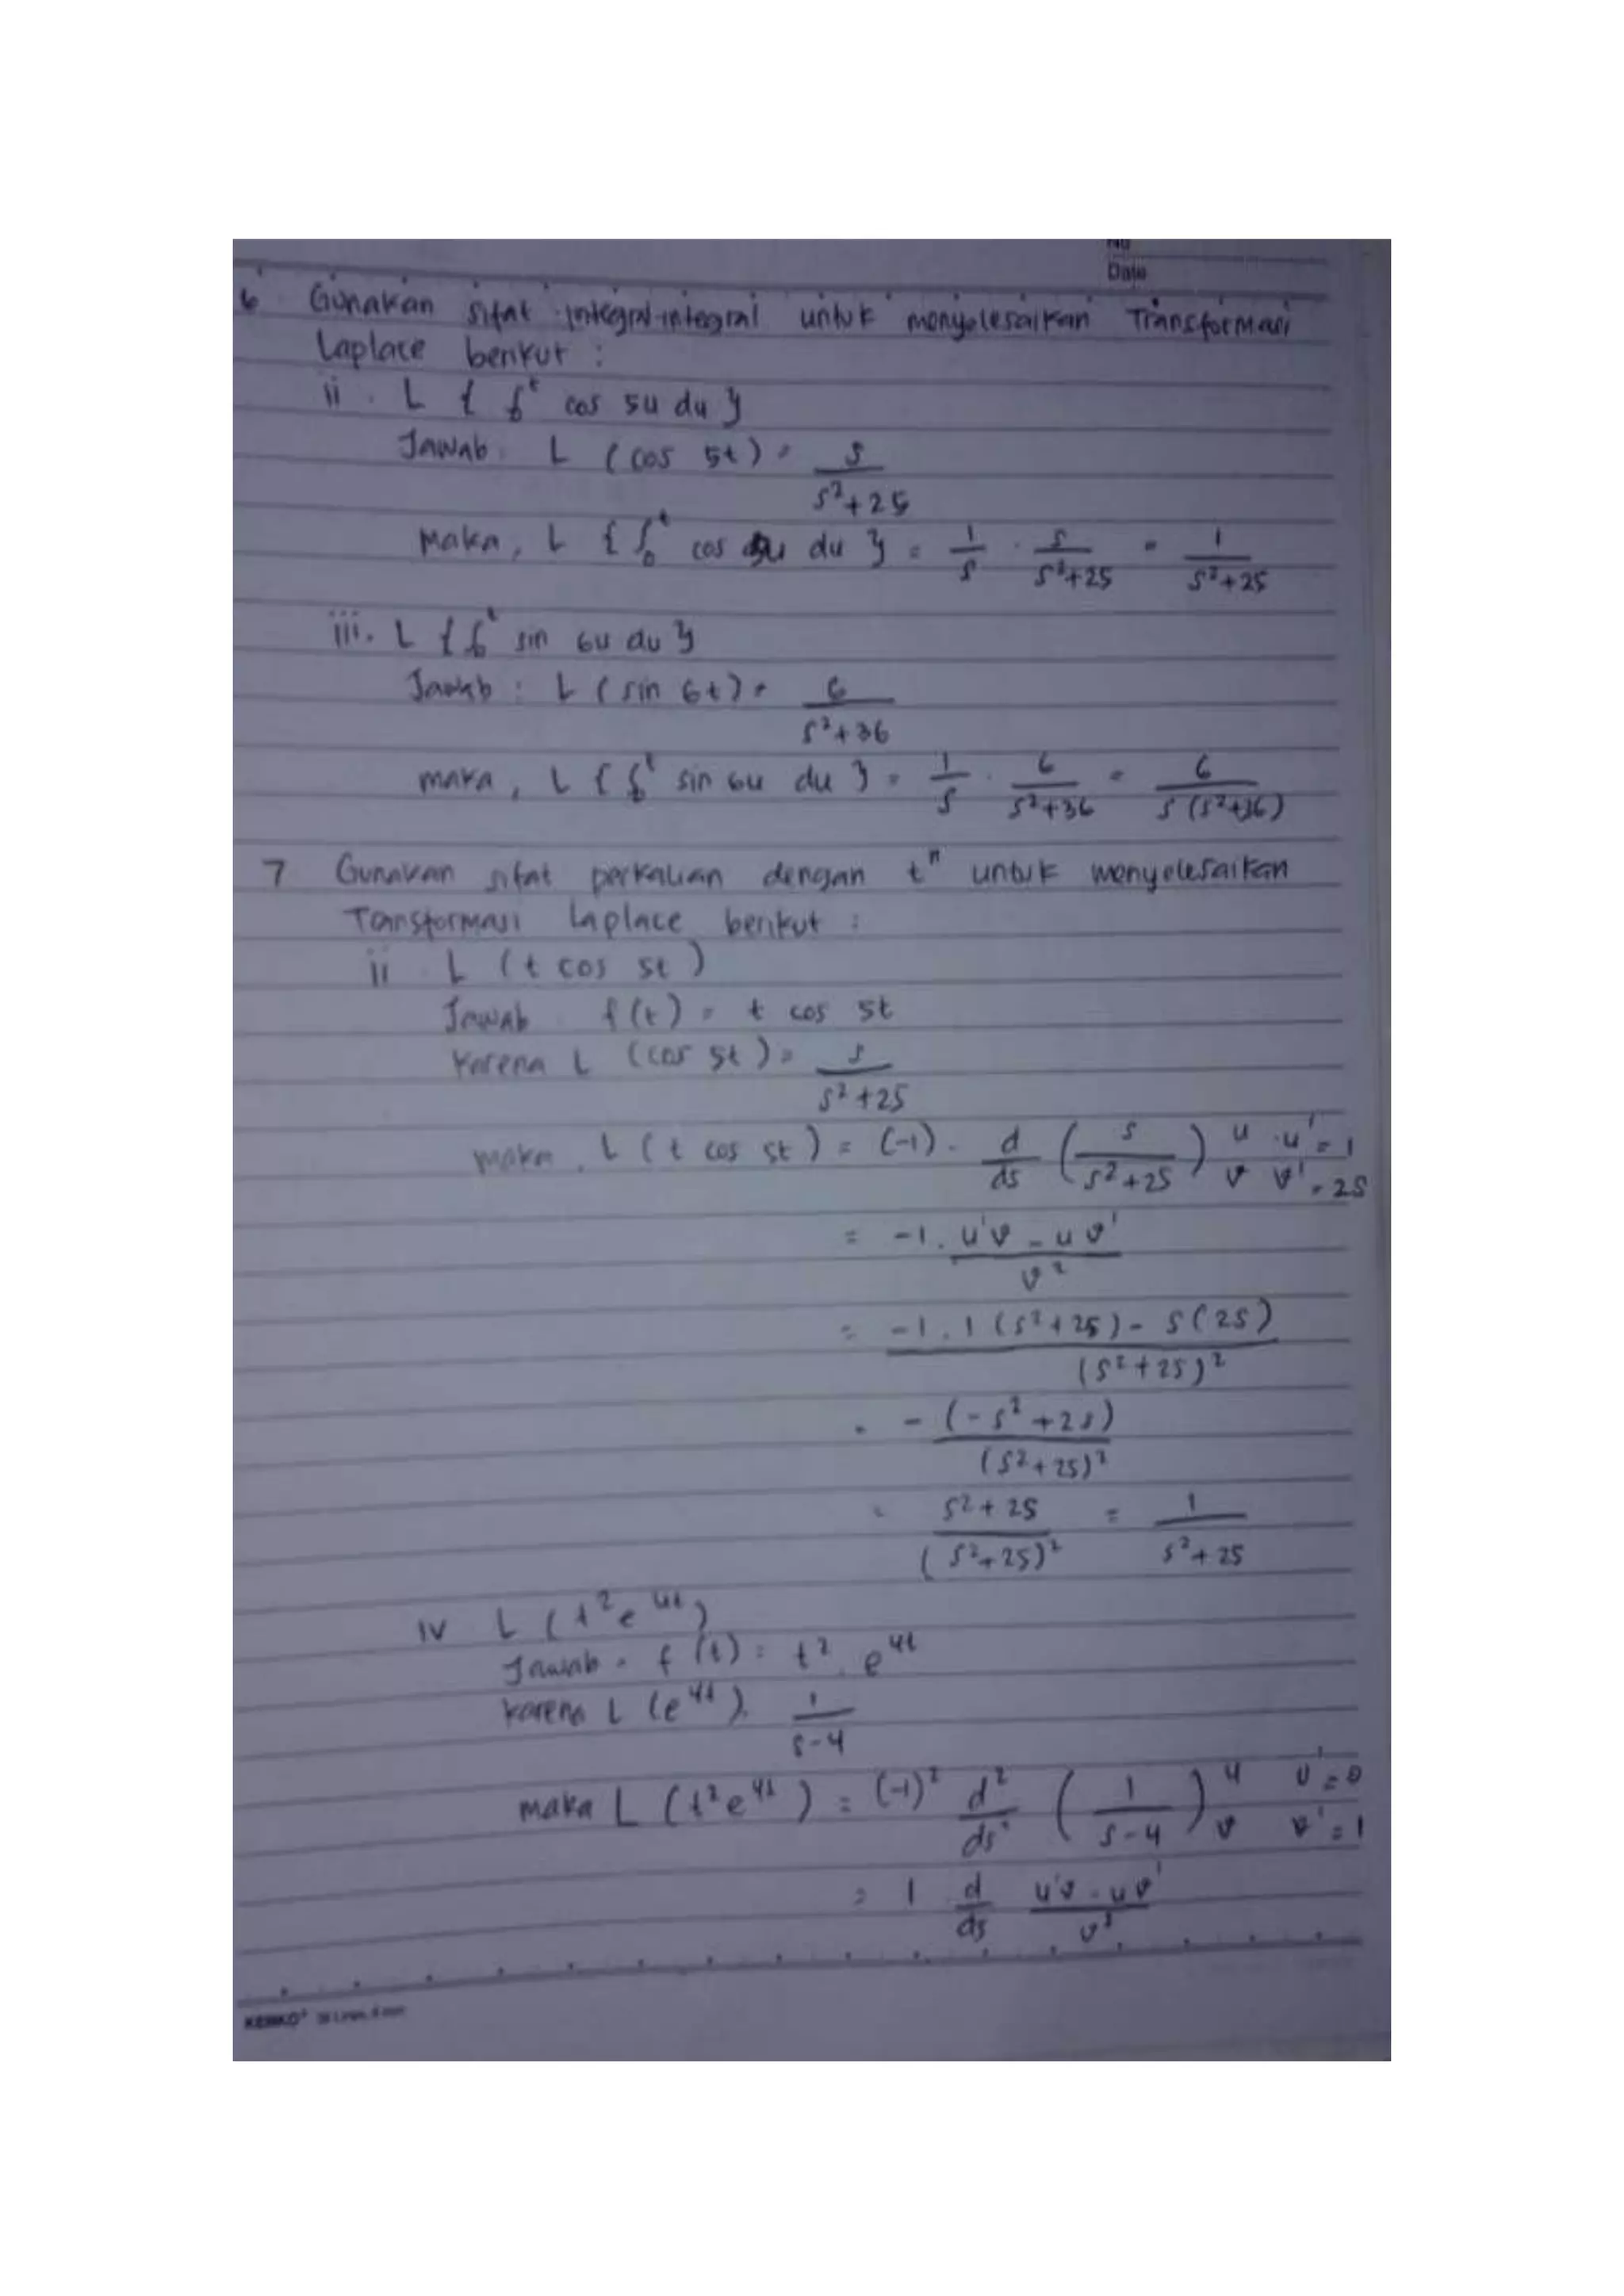 No
Date
6 Gunakan sifat integral-integral untuk menyelesaikan Transformasi
Laplace berikut :
ii. L { ∫₀ᵗ cos 5u du }
Jawab: L (cos 5t) = s/(s²+25)
Maka, L { ∫₀ᵗ cos 5u du } = 1/s · s/(s²+25) = 1/(s²+25)
iii. L { ∫₀ᵗ sin 6u du }
Jawab : L (sin 6t) = 6/(s²+36)
maka, L { ∫₀ᵗ sin 6u du } = 1/s · 6/(s²+36) = 6/(s(s²+36))
7 Gunakan sifat perkalian dengan tⁿ untuk menyelesaikan
Transformasi Laplace berikut :
ii L (t cos 5t)
Jawab f(t) = t cos 5t
Karena L (cos 5t) = s/(s²+25)
maka, L (t cos 5t) = (-1) · d/ds (s/(s²+25)) u/v u'=1 v'=2s
= -1 . (u'v - uv')/v²
= (-1 . 1(s²+25) - s(2s))/(s²+25)²
= -(-s²+25)/(s²+25)²
= (s²+25)/(s²+25)² = 1/(s²+25)
iv L (t²e⁴ᵗ)
Jawab = f(t) = t² . e⁴ᵗ
karena L (e⁴ᵗ) = 1/(s-4)
maka L (t²e⁴ᵗ) = (-1)² d²/ds² (1/(s-4)) u/v u'=0 v'=1
= 1 d/ds (u'v - uv')/v²
KENKO